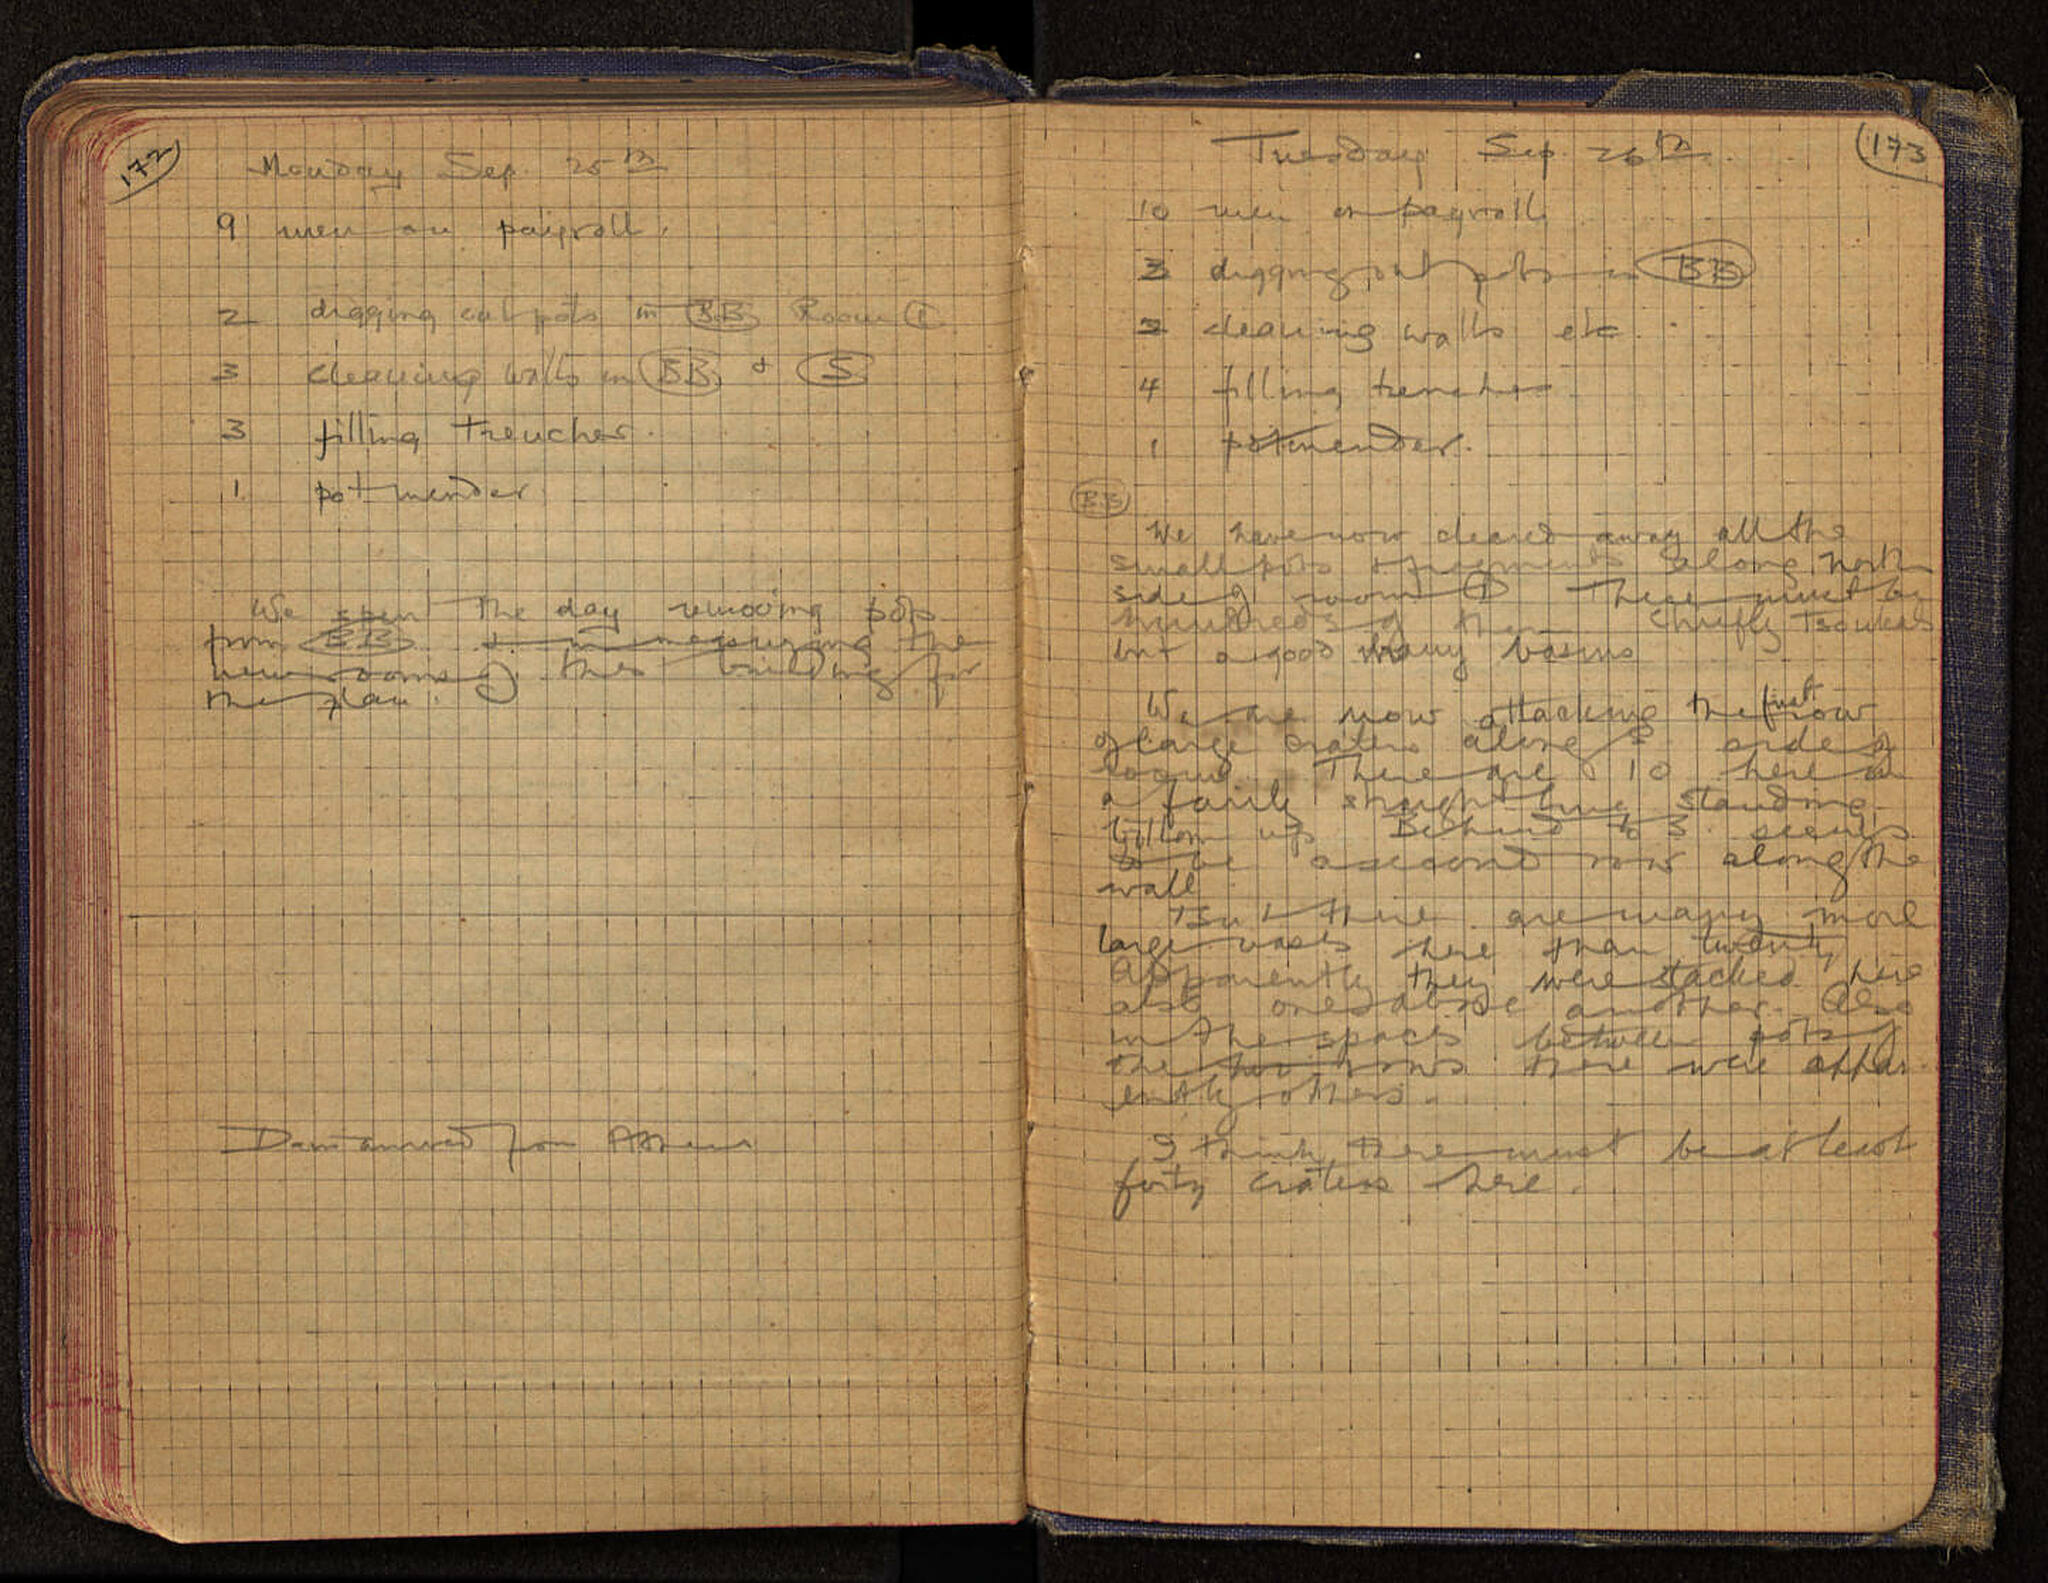 172
Monday Sep. 25th
9 men on payroll.
2 digging out pots in BB Room 1
3 cleaning walls in BB & S
3 filling trenches.
1 potmender
We spent the day removing pots
from BB & in measuring the
new rooms of this building for
the plan.
Dam arrived from Athens
173
Tuesday Sep. 26th.
10 men on payroll
3 digging out pots in BB
2 cleaning walls etc
4 filling trenches
1 potmender.
BB
We have now cleared away all the
small pots & fragments along North
side of room 1 There must be
hundreds of them chiefly Tsoukas
but a good many basins
We are now attacking the first row
of large craters along side of
room. There are 10 here in
a fairly straight line standing
bottom up. Behind to seems
to be a second row along the
wall
But there are many more
large vases here than twenty
Apparently they were stacked here
also one above another. Also
in the spaces between pots of
the two rows there were appar
ently others.
I think there must be at least
forty craters here.